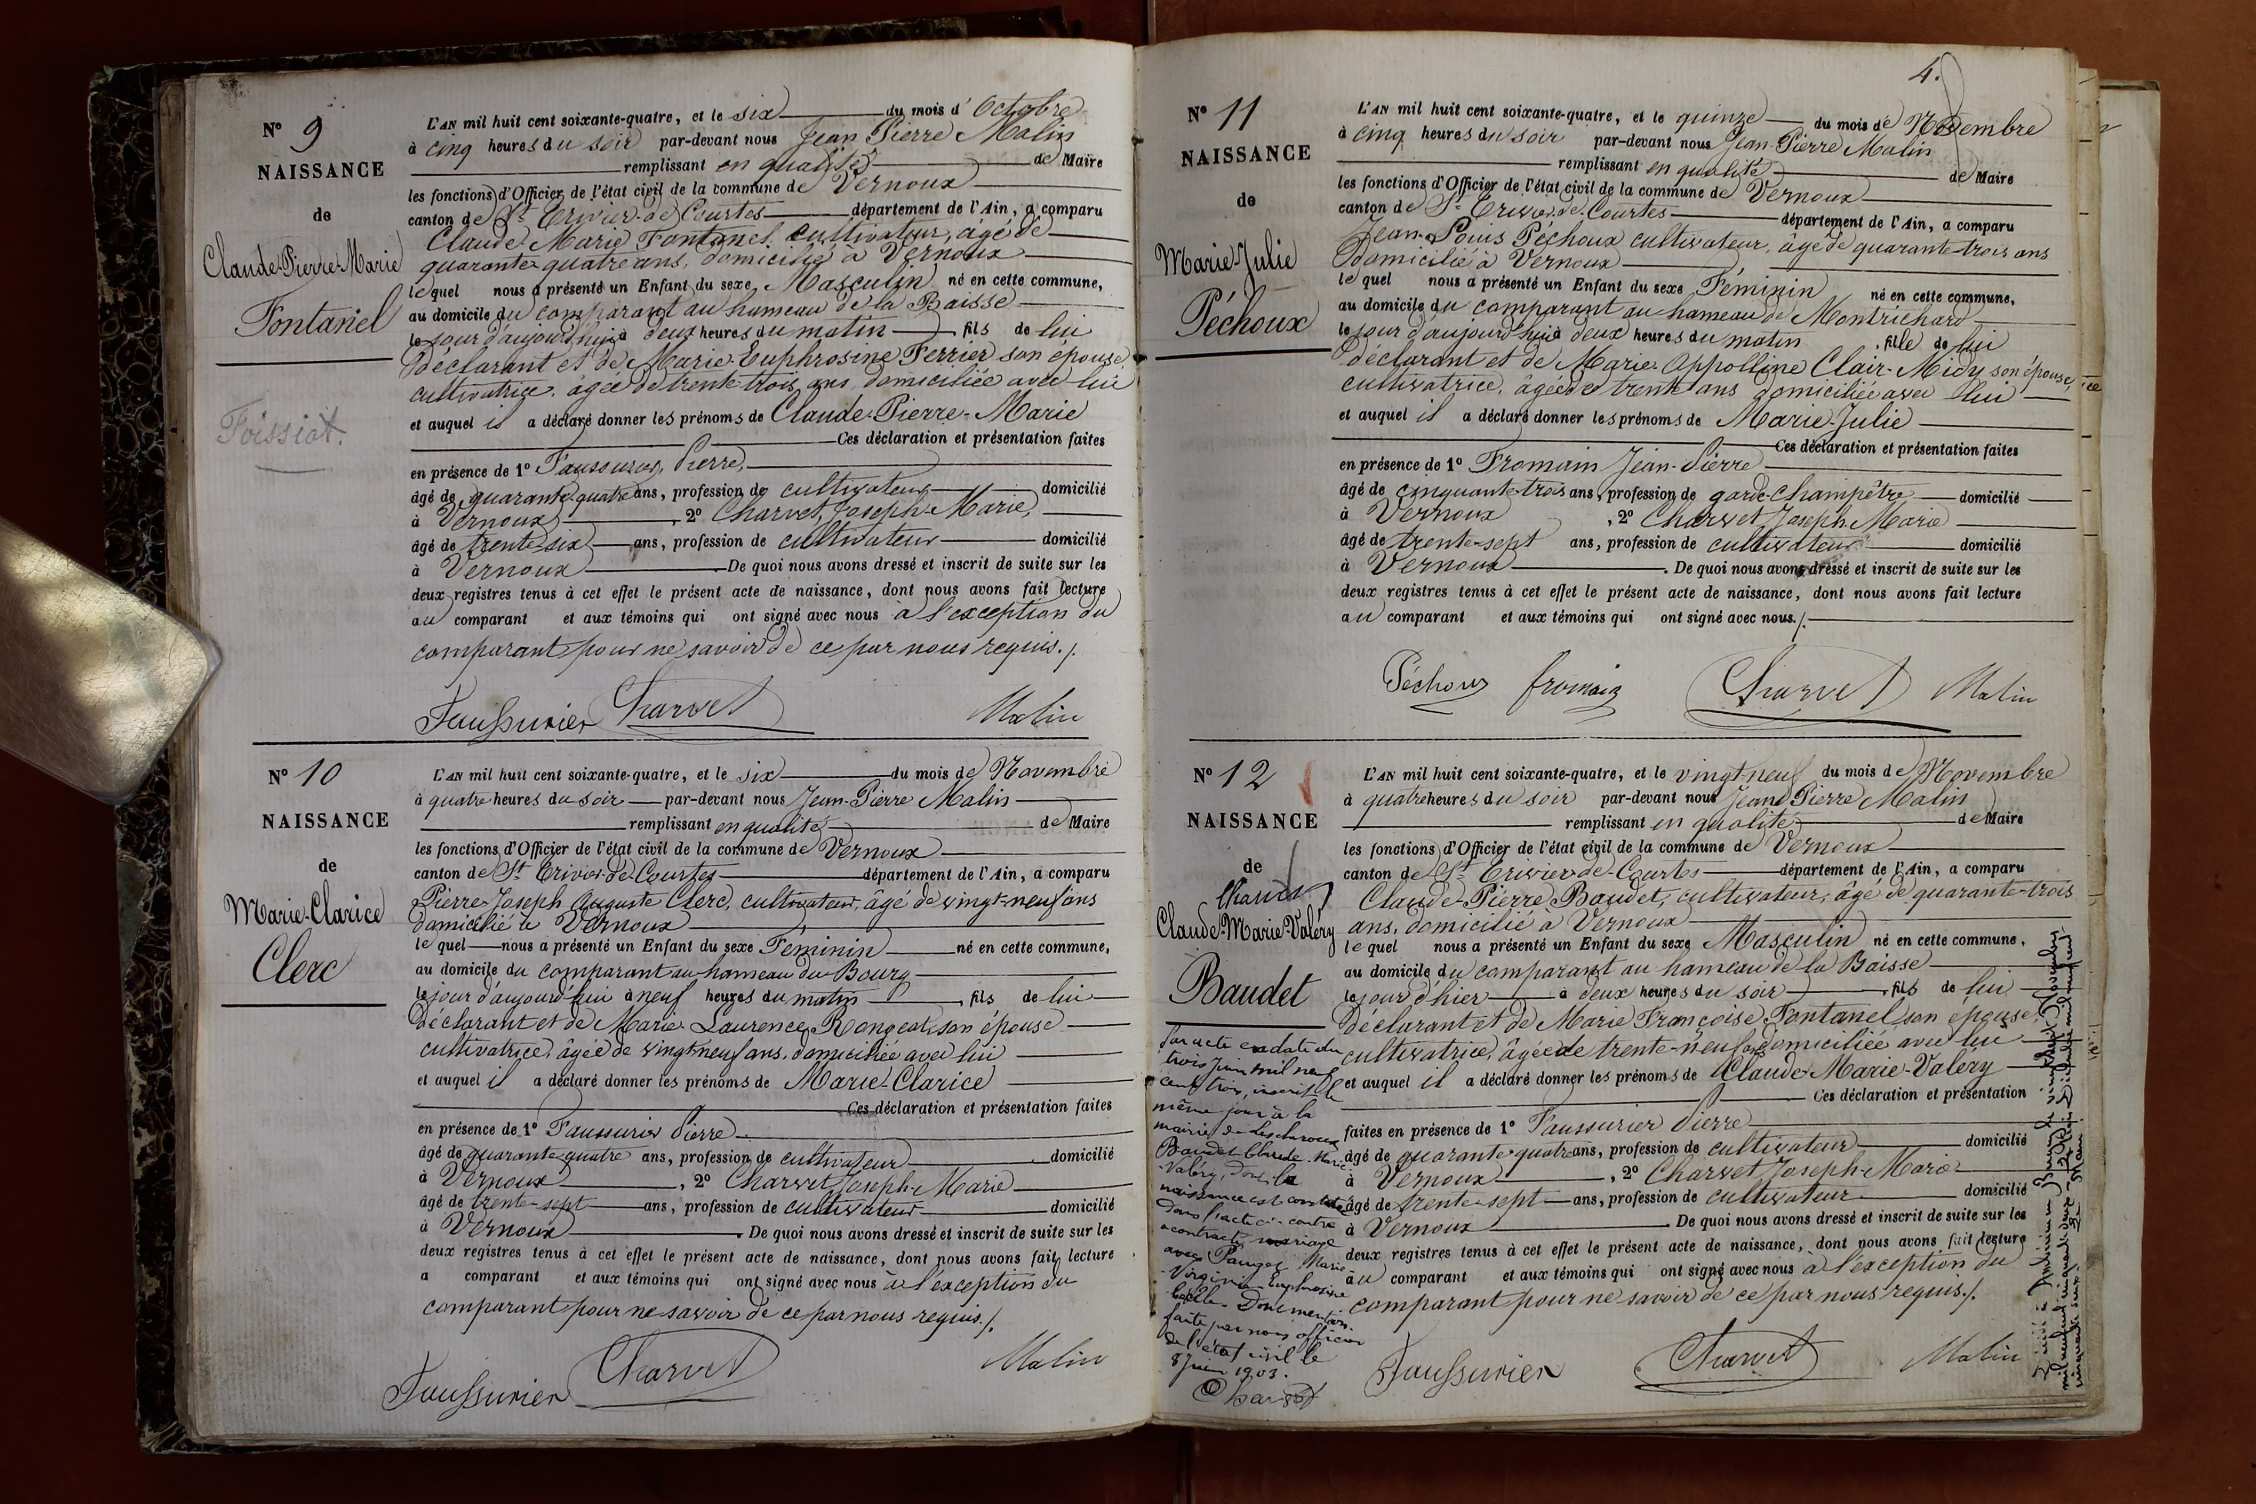 N° 9
NAISSANCE
de
Claude-Pierre-Marie
Fontanel
Foissiat.
L'AN mil huit cent soixante-quatre, et le six du mois d' Octobre
à cinq heures du soir par-devant nous Jean Pierre Malin
remplissant en qualité de Maire
les fonctions d'Officier de l'état civil de la commune de Vernoux
canton de St Trivier-de-Courtes département de l'Ain, a comparu
Claude-Marie Fontanel, cultivateur, âgé de
quarante-quatre ans, domicilié à Vernoux
lequel nous a présenté un Enfant du sexe Masculin né en cette commune,
au domicile du comparant au hameau de la Baisse
le jour d'aujourd'hui à deux heures du matin fils de lui
déclarant et de Marie-Euphrosine Ferrier son épouse,
cultivatrice, âgée de trente-trois ans, domiciliée avec lui
et auquel il a déclaré donner les prénoms de Claude-Pierre-Marie
Ces déclaration et présentation faites
en présence de 1° Faussurier, Pierre,
âgé de quarante-quatre ans, profession de cultivateur domicilié
à Vernoux, 2° Charvet, Joseph-Marie,
âgé de trente-six ans, profession de cultivateur domicilié
à Vernoux De quoi nous avons dressé et inscrit de suite sur les
deux registres tenus à cet effet le présent acte de naissance, dont nous avons fait lecture
au comparant et aux témoins qui ont signé avec nous à l'exception du
comparant pour ne savoir de ce par nous requis./.
Faussurier Charvet Malin
N° 10
NAISSANCE
de
Marie-Clarice
Clerc
L'AN mil huit cent soixante-quatre, et le six du mois de Novembre
à quatre heures du soir par-devant nous Jean-Pierre Malin
remplissant en qualité de Maire
les fonctions d'Officier de l'état civil de la commune de Vernoux
canton de St Trivier-de-Courtes département de l'Ain, a comparu
Pierre-Joseph Auguste Clerc, cultivateur, âgé de vingt-neuf ans
domicilié à Vernoux
lequel nous a présenté un Enfant du sexe Féminin né en cette commune,
au domicile du comparant au hameau du Bourg
le jour d'aujourd'hui à neuf heures du matin, fils de lui
déclarant et de Marie-Laurence Rongeat, son épouse
cultivatrice, âgée de vingt-neuf ans, domiciliée avec lui
et auquel il a déclaré donner les prénoms de Marie-Clarice
Ces déclaration et présentation faites
en présence de 1° Faussurier Pierre
âgé de quarante-quatre ans, profession de cultivateur domicilié
à Vernoux, 2° Charvet Joseph-Marie
âgé de trente-sept ans, profession de cultivateur domicilié
à Vernoux. De quoi nous avons dressé et inscrit de suite sur les
deux registres tenus à cet effet le présent acte de naissance, dont nous avons fait lecture
a comparant et aux témoins qui ont signé avec nous à l'exception du
comparant pour ne savoir de ce par nous requis./.
Faussurier Charvet Malin
4.
N° 11
NAISSANCE
de
Marie-Julie
Péchoux
L'AN mil huit cent soixante-quatre, et le quinze du mois de Novembre
à cinq heures du soir par-devant nous Jean-Pierre Malin
remplissant en qualité de Maire
les fonctions d'Officier de l'état civil de la commune de Vernoux
canton de St Trivier-de-Courtes département de l'Ain, a comparu
Jean-Louis Péchoux cultivateur, âgé de quarante-trois ans
domicilié à Vernoux
lequel nous a présenté un Enfant du sexe Féminin né en cette commune,
au domicile du comparant au hameau de Montrichard
le jour d'aujourd'hui à deux heures du matin, fille de lui
déclarant et de Marie-Appolline Clair-Midy son épouse,
cultivatrice, âgée de trente ans domiciliée avec lui
et auquel il a déclaré donner les prénoms de Marie-Julie
Ces déclaration et présentation faites
en présence de 1° Fromain Jean-Pierre
âgé de cinquante-trois ans, profession de garde-champêtre domicilié
à Vernoux, 2° Charvet Joseph Marie
âgé de trente-sept ans, profession de cultivateur domicilié
à Vernoux. De quoi nous avons dressé et inscrit de suite sur les
deux registres tenus à cet effet le présent acte de naissance, dont nous avons fait lecture
au comparant et aux témoins qui ont signé avec nous./.
Péchoux fromain Charvet Malin
N° 12
NAISSANCE
de
Claude-Marie-Valéry
Baudet
Par acte en date du
trois Juin mil neuf
cent trois, inscrit le
même jour à la
mairie de Lescheroux
Baudet Claude-Marie
Valéry, dont la
naissance est constatée
dans l'acte ci-contre
a contracté mariage
avec Pauget Marie-
Virginie-Euphrosine
Dont mention
faite par nous officier
de l'état civil le
8 Juin 1903.
L'AN mil huit cent soixante-quatre, et le vingt-neuf du mois de Novembre
à quatre heures du soir par-devant nous Jean Pierre Malin
remplissant en qualité de Maire
les fonctions d'Officier de l'état civil de la commune de Vernoux
canton de St Trivier-de-Courtes département de l'Ain, a comparu
Claude-Pierre Baudet, cultivateur, âgé de quarante-trois
ans, domicilié à Vernoux
lequel nous a présenté un Enfant du sexe Masculin né en cette commune,
au domicile du comparant au hameau de la Baisse
le jour d'hier à deux heures du soir, fils de lui
déclarant et de Marie Françoise Fontanel son épouse,
cultivatrice, âgée de trente-neuf ans domiciliée avec lui
et auquel il a déclaré donner les prénoms de Claude-Marie-Valéry
Ces déclaration et présentation
faites en présence de 1° Faussurier Pierre
âgé de quarante-quatre ans, profession de cultivateur domicilié
à Vernoux, 2° Charvet Joseph-Marie
âgé de trente-sept ans, profession de cultivateur domicilié
à Vernoux. De quoi nous avons dressé et inscrit de suite sur les
deux registres tenus à cet effet le présent acte de naissance, dont nous avons fait lecture
au comparant et aux témoins qui ont signé avec nous à l'exception du
comparant pour ne savoir de ce par nous requis./.
Faussurier Charvet Malin